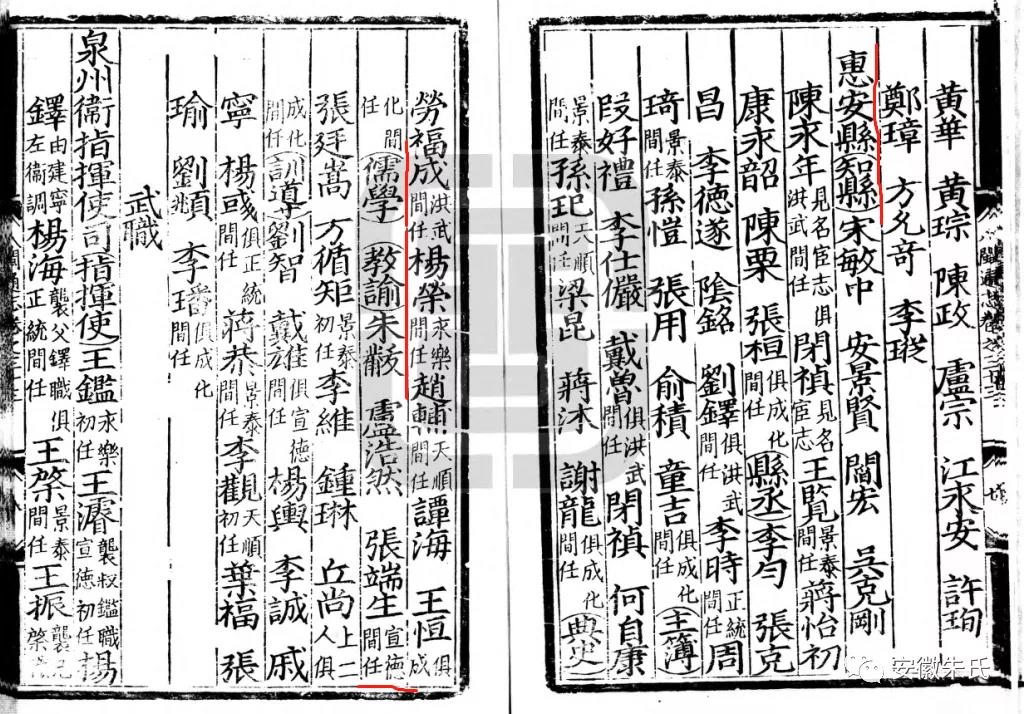 黄華 黄琮 陳政 盧宗 江永安 許珣
鄭璋 方允竒 李瑽
惠安縣知縣宋敏中 安景賢 閻宏 吴克剛
陳永年見名宦志俱洪武間任閉禎見名宦志王覧景泰間任蔣怡初
康永韶 陳栗 張桓俱成化間任縣丞李勻 張克
昌 李德遂 陰銘 劉鐸俱洪武間任李時正統間任周
琦景泰間任孫愷 張用 俞積 童吉俱成化間任主簿
段好禮 李仕儼 戴魯俱洪武間任閉禎 何自康
景泰間任孫玘天順間任梁昆 蔣沐 謝龍俱成化間任典史
勞福成洪武間任楊榮永樂間任趙 天順間任譚海 王恒俱成
化間任儒學教諭朱 盧浩然 張端生宣德間任
張廷嵩 方循矩景泰初任李維 鍾琳 丘尚上二人俱
成化間任訓導劉智 戴 俱宣德間任楊輿 李誠 戚
寧 楊彧俱正統間任蔣恭景泰間任李觀天順初任葉福 張
瑜 劉顒 李璿俱成化間任
武職
泉州衛指揮使司指揮使王鑑永樂初任王濬襲叔鑑職宣德初任楊
鐸由建寧左衛調楊海襲父鐸職俱正統間任王榮景泰間任王振襲兄榮
安徽朱氏